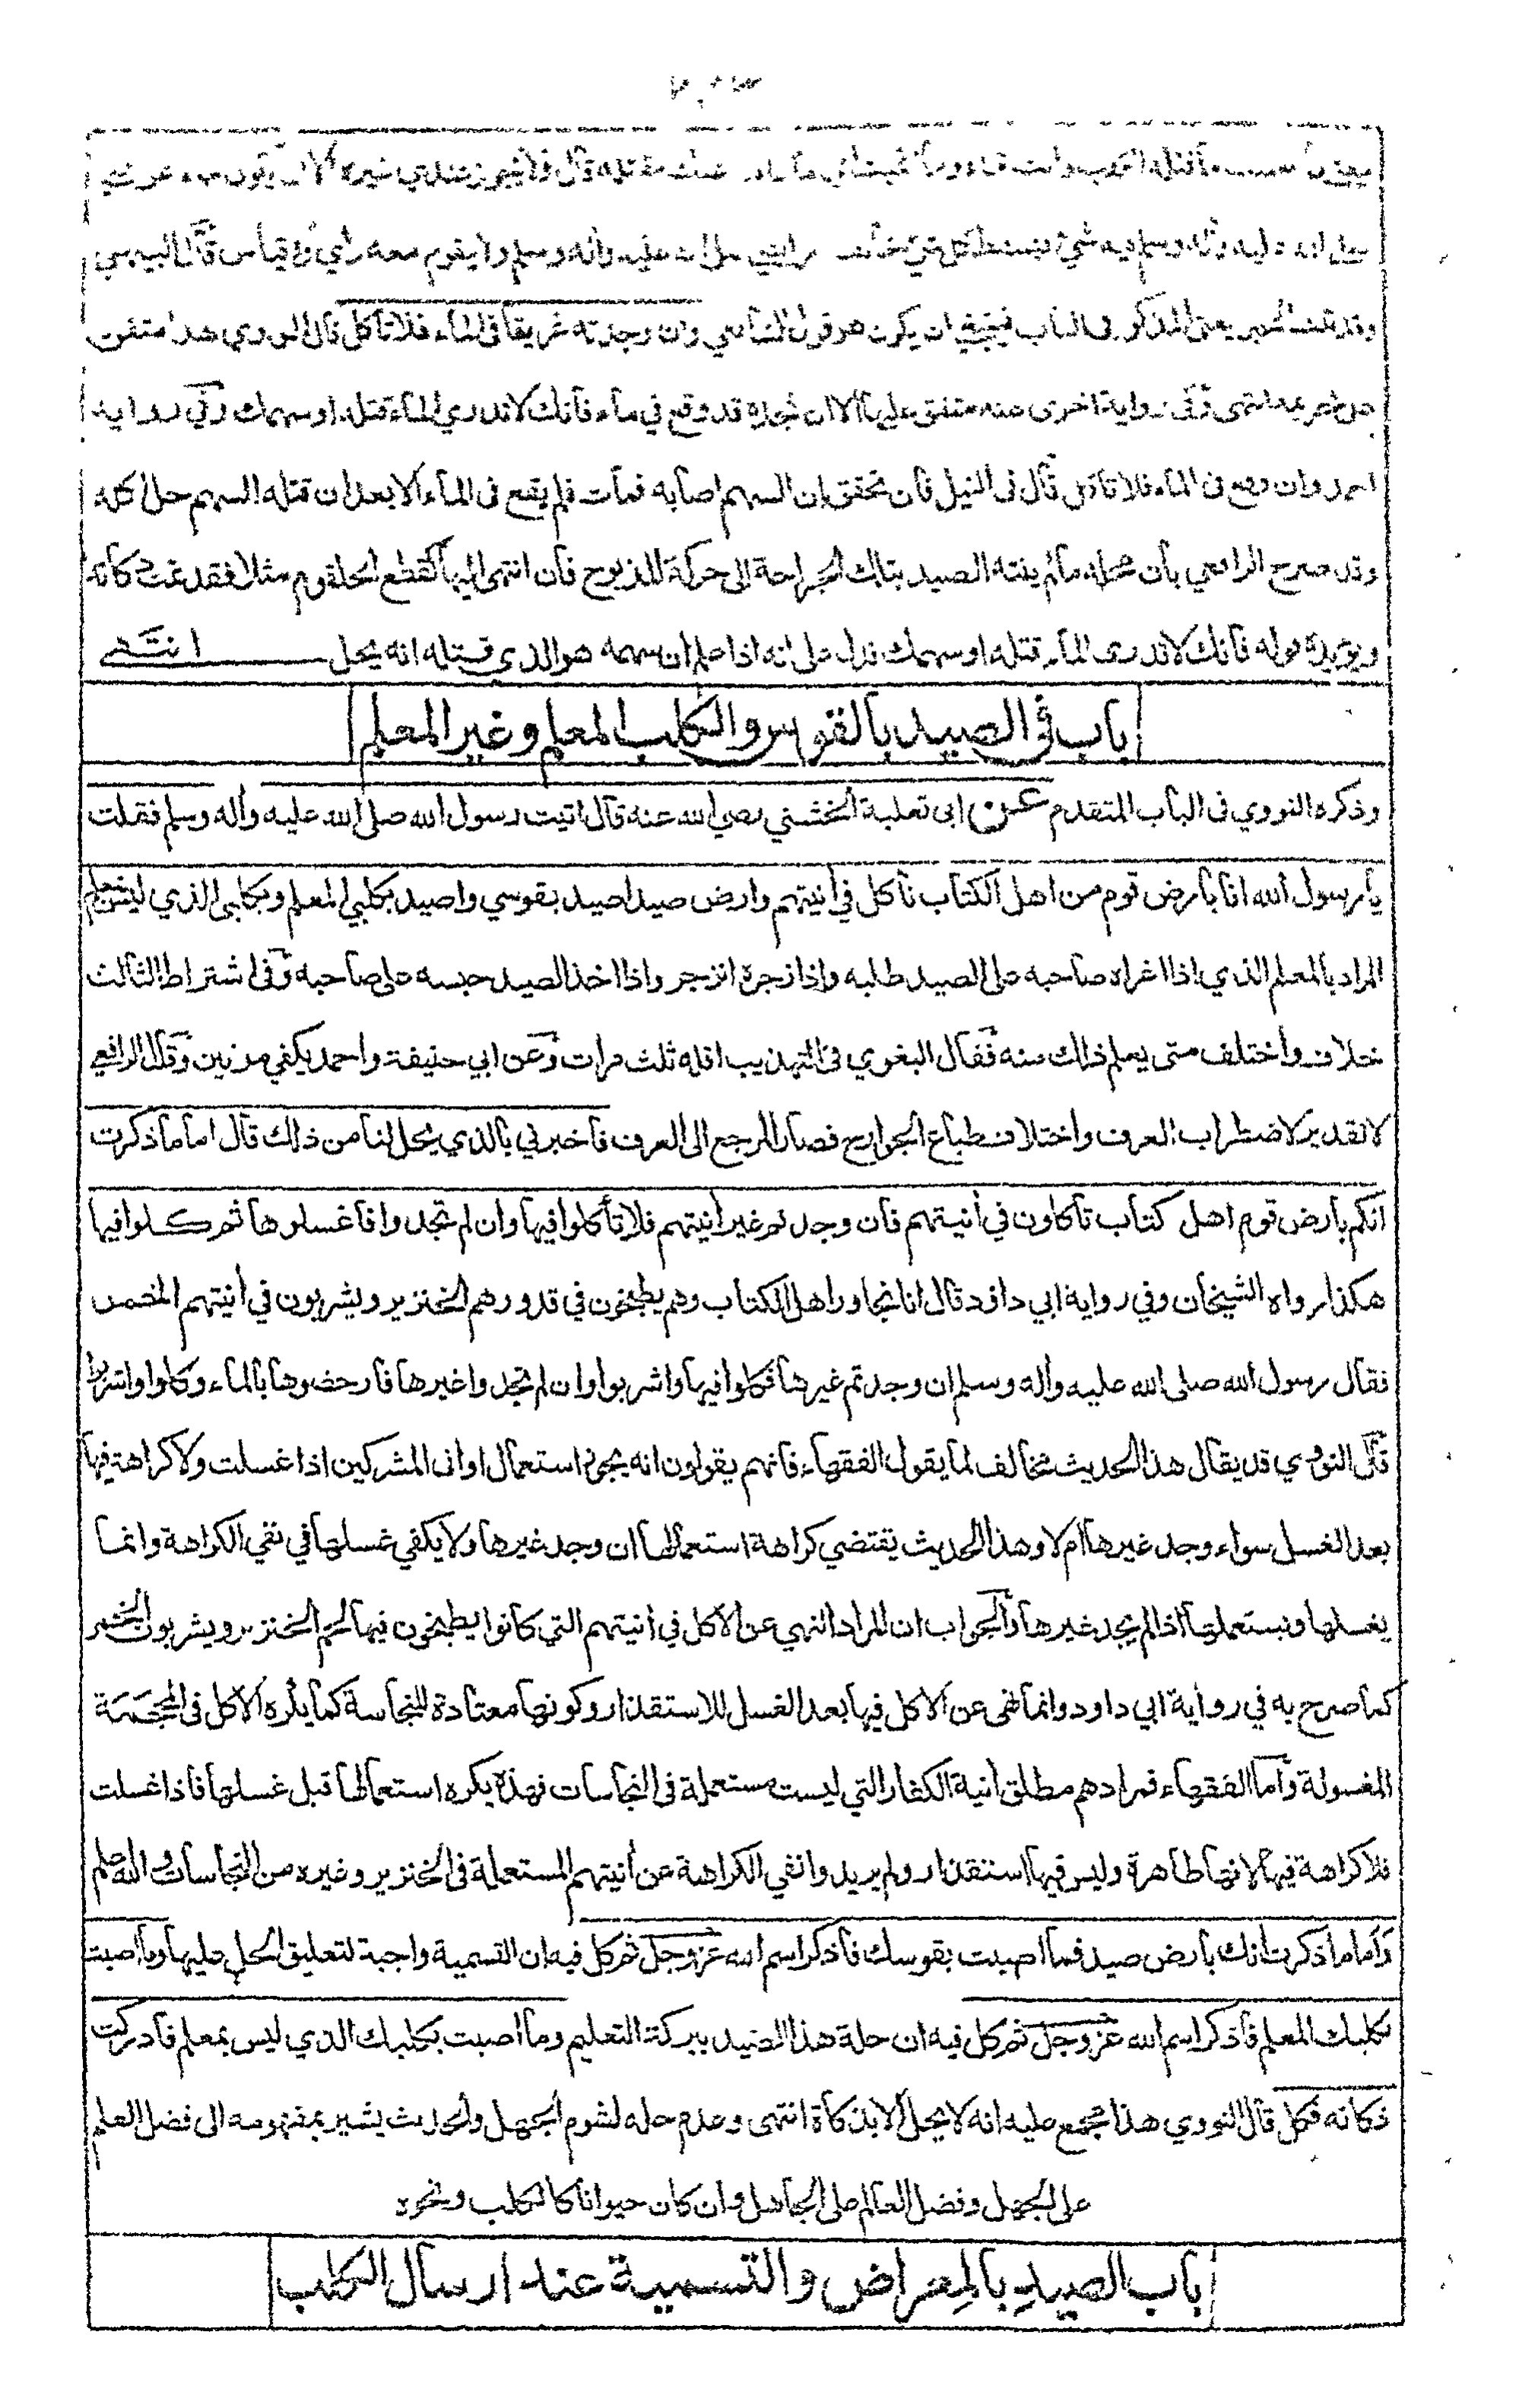 صلى الله عليه وآله وسلم فيه شيء فيسقط كل شيء خالف امر النبي صلى الله عليه وأله وسلم ولا يقوم معه رأي ولا قياس قال البيهقي
وقد ثبت الخبر يعني المذكور في الباب فينبغي ان يكون هو قول الشافعي وان وجدته غريقا في الماء فلا تأكل قال النووي هذا متفق
على تحريمه انتهى وفي رواية اخرى عنه متفق عليها الا ان تجده قد وقع في ماء فأنك لا تدري الماء قتله او سهمك وفي رواية
احمد وان وقع في الماء فلا تأكل قال في النيل فأن تحقق ان السهم اصابه فمات فلم يقع في الماء الا بعد ان قتله السهم حل اكله
وقد صرح الرافعي بأن محله مالم ينته الصيد بتلك الجراحة الى حركة المذبوح فأن انتهى اليها كقطع الحلقوم مثلا فقد تمت ذكاته
ويؤيده قوله فأنك لا تدري الماء قتله او سهمك فدل على انه اذا علم ان سهمه هو الذي قتله انه يحل انتهى
باب في الصيد بالقوس والكلب المعلم وغير المعلم
وذكره النووي في الباب المتقدم عن ابي ثعلبة الخشني رضي الله عنه قال اتيت رسول الله صلى الله عليه وأله وسلم فقلت
يا رسول الله انا بأرض قوم من اهل الكتاب نأكل في أنيتهم وارض صيد اصيد بقوسي واصيد بكلبي المعلم وبكلبي الذي ليس بمعلم
المراد بالمعلم الذي اذا اغراه صاحبه على الصيد طلبه واذا زجره انزجر واذا اخذ الصيد حبسه على صاحبه وفي اشتراط الثالث
خلاف واختلف متى يعلم ذلك منه فقال البغوي في التهذيب اقله ثلث مرات وعن ابي حنيفة واحمد يكفي مرتين وقال الرافعي
لا تقدير لاضطراب العرف واختلاف طباع الجوارح فصار المرجع الى العرف فأخبرني بالذي يحل لنا من ذلك قال اما ما ذكرت
انكم بأرض قوم اهل كتاب تأكلون في أنيتهم فأن وجدتم غير أنيتهم فلا تأكلوا فيها وان لم تجدوا فأغسلوها ثم كلوا فيها
هكذا رواه الشيخان وفي رواية ابي داؤد قال انا نجاور اهل الكتاب وهم يطبخون في قدورهم الخنزير ويشربون في أنيتهم الخمر
فقال رسول الله صلى الله عليه وأله وسلم ان وجدتم غيرها فكلوا فيها واشربوا وان لم تجدوا غيرها فأرحضوها بالماء وكلوا واشربوا
قال النووي قد يقال هذا الحديث مخالف لما يقول الفقهاء فأنهم يقولون انه يجوز استعمال اواني المشركين اذا غسلت ولا كراهة فيها
بعد الغسل سواء وجد غيرها ام لا وهذا الحديث يقتضي كراهة استعمالها ان وجد غيرها ولا يكفي غسلها في نفي الكراهة وانما
يغسلها ويستعملها اذا لم يجد غيرها والجواب ان المراد النهي عن الاكل في أنيتهم التي كانوا يطبخون فيها لحم الخنزير ويشربون الخمر
كما صرح به في رواية ابي داود وانما نهى عن الاكل فيها بعد الغسل للاستقذار وكونها معتادة للنجاسة كما يكره الاكل في المحجمة
المغسولة وأما الفقهاء فمرادهم مطلق أنية الكفار التي ليست مستعملة في النجاسات فهذه يكره استعمالها قبل غسلها فأذا غسلت
فلا كراهة فيها لانها طاهرة وليس فيها استقذار ولم يريدوا نفي الكراهة عن أنيتهم المستعملة في الخنزير وغيره من النجاسات والله اعلم
وأما ما ذكرت انك بأرض صيد فما اصبت بقوسك فأذكر اسم الله عز وجل ثم كل فيه ان التسمية واجبة لتعليق الحل عليها وما اصبت
بكلبك المعلم فأذكر اسم الله عز وجل ثم كل فيه ان حلة هذا الصيد ببركة التعليم وما اصبت بكلبك الذي ليس بمعلم فأدركت
ذكاته فكل قال النووي هذا مجمع عليه انه لا يحل الا بذكاة انتهى وعدم حله لشوم الجهل والحديث يشير بمفهومه الى فضل العلم
على الجهل وفضل العالم على الجاهل وان كان حيوانا كالكلب ونحوه
باب الصيد بالمعراض والتسمية عند ارسال الكلب